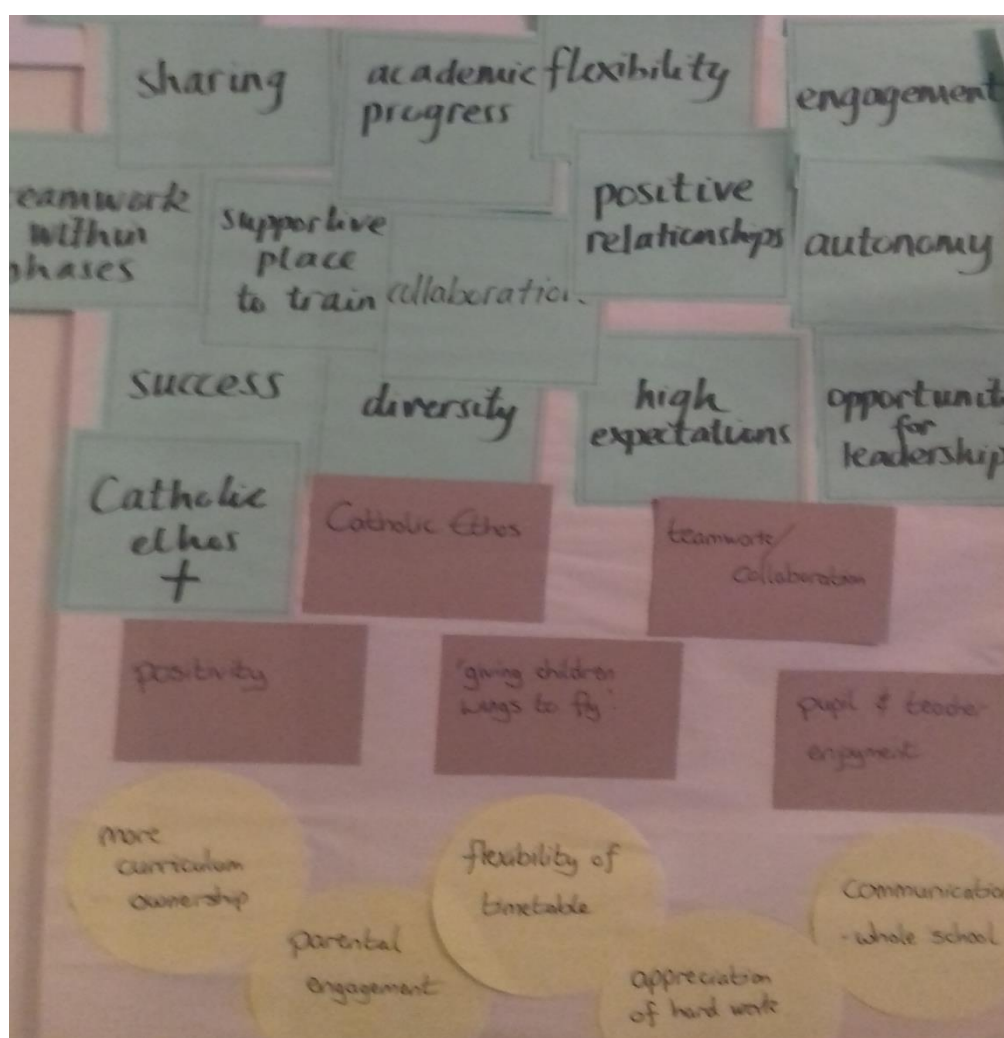 sharing
academic
progress
flexibility
engagement
eamwork
within
phases
supportive
place
to train
collaboration
positive
relationships
autonomy
success
diversity
high
expectations
opportunit
for
leadership
Catholic
ethos
+
Catholic Ethos
teamwork/
collaboration
positivity
'giving children
wings to fly'
pupil & teacher
enjoyment
more
curriculum
ownership
parental
engagement
flexibility of
timetable
appreciation
of hard work
communicatio
- whole school